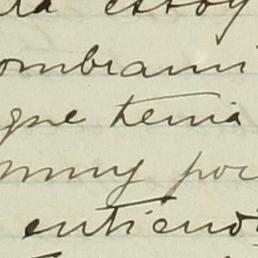 estoy
ombrami
que tenia
muy po
entiend